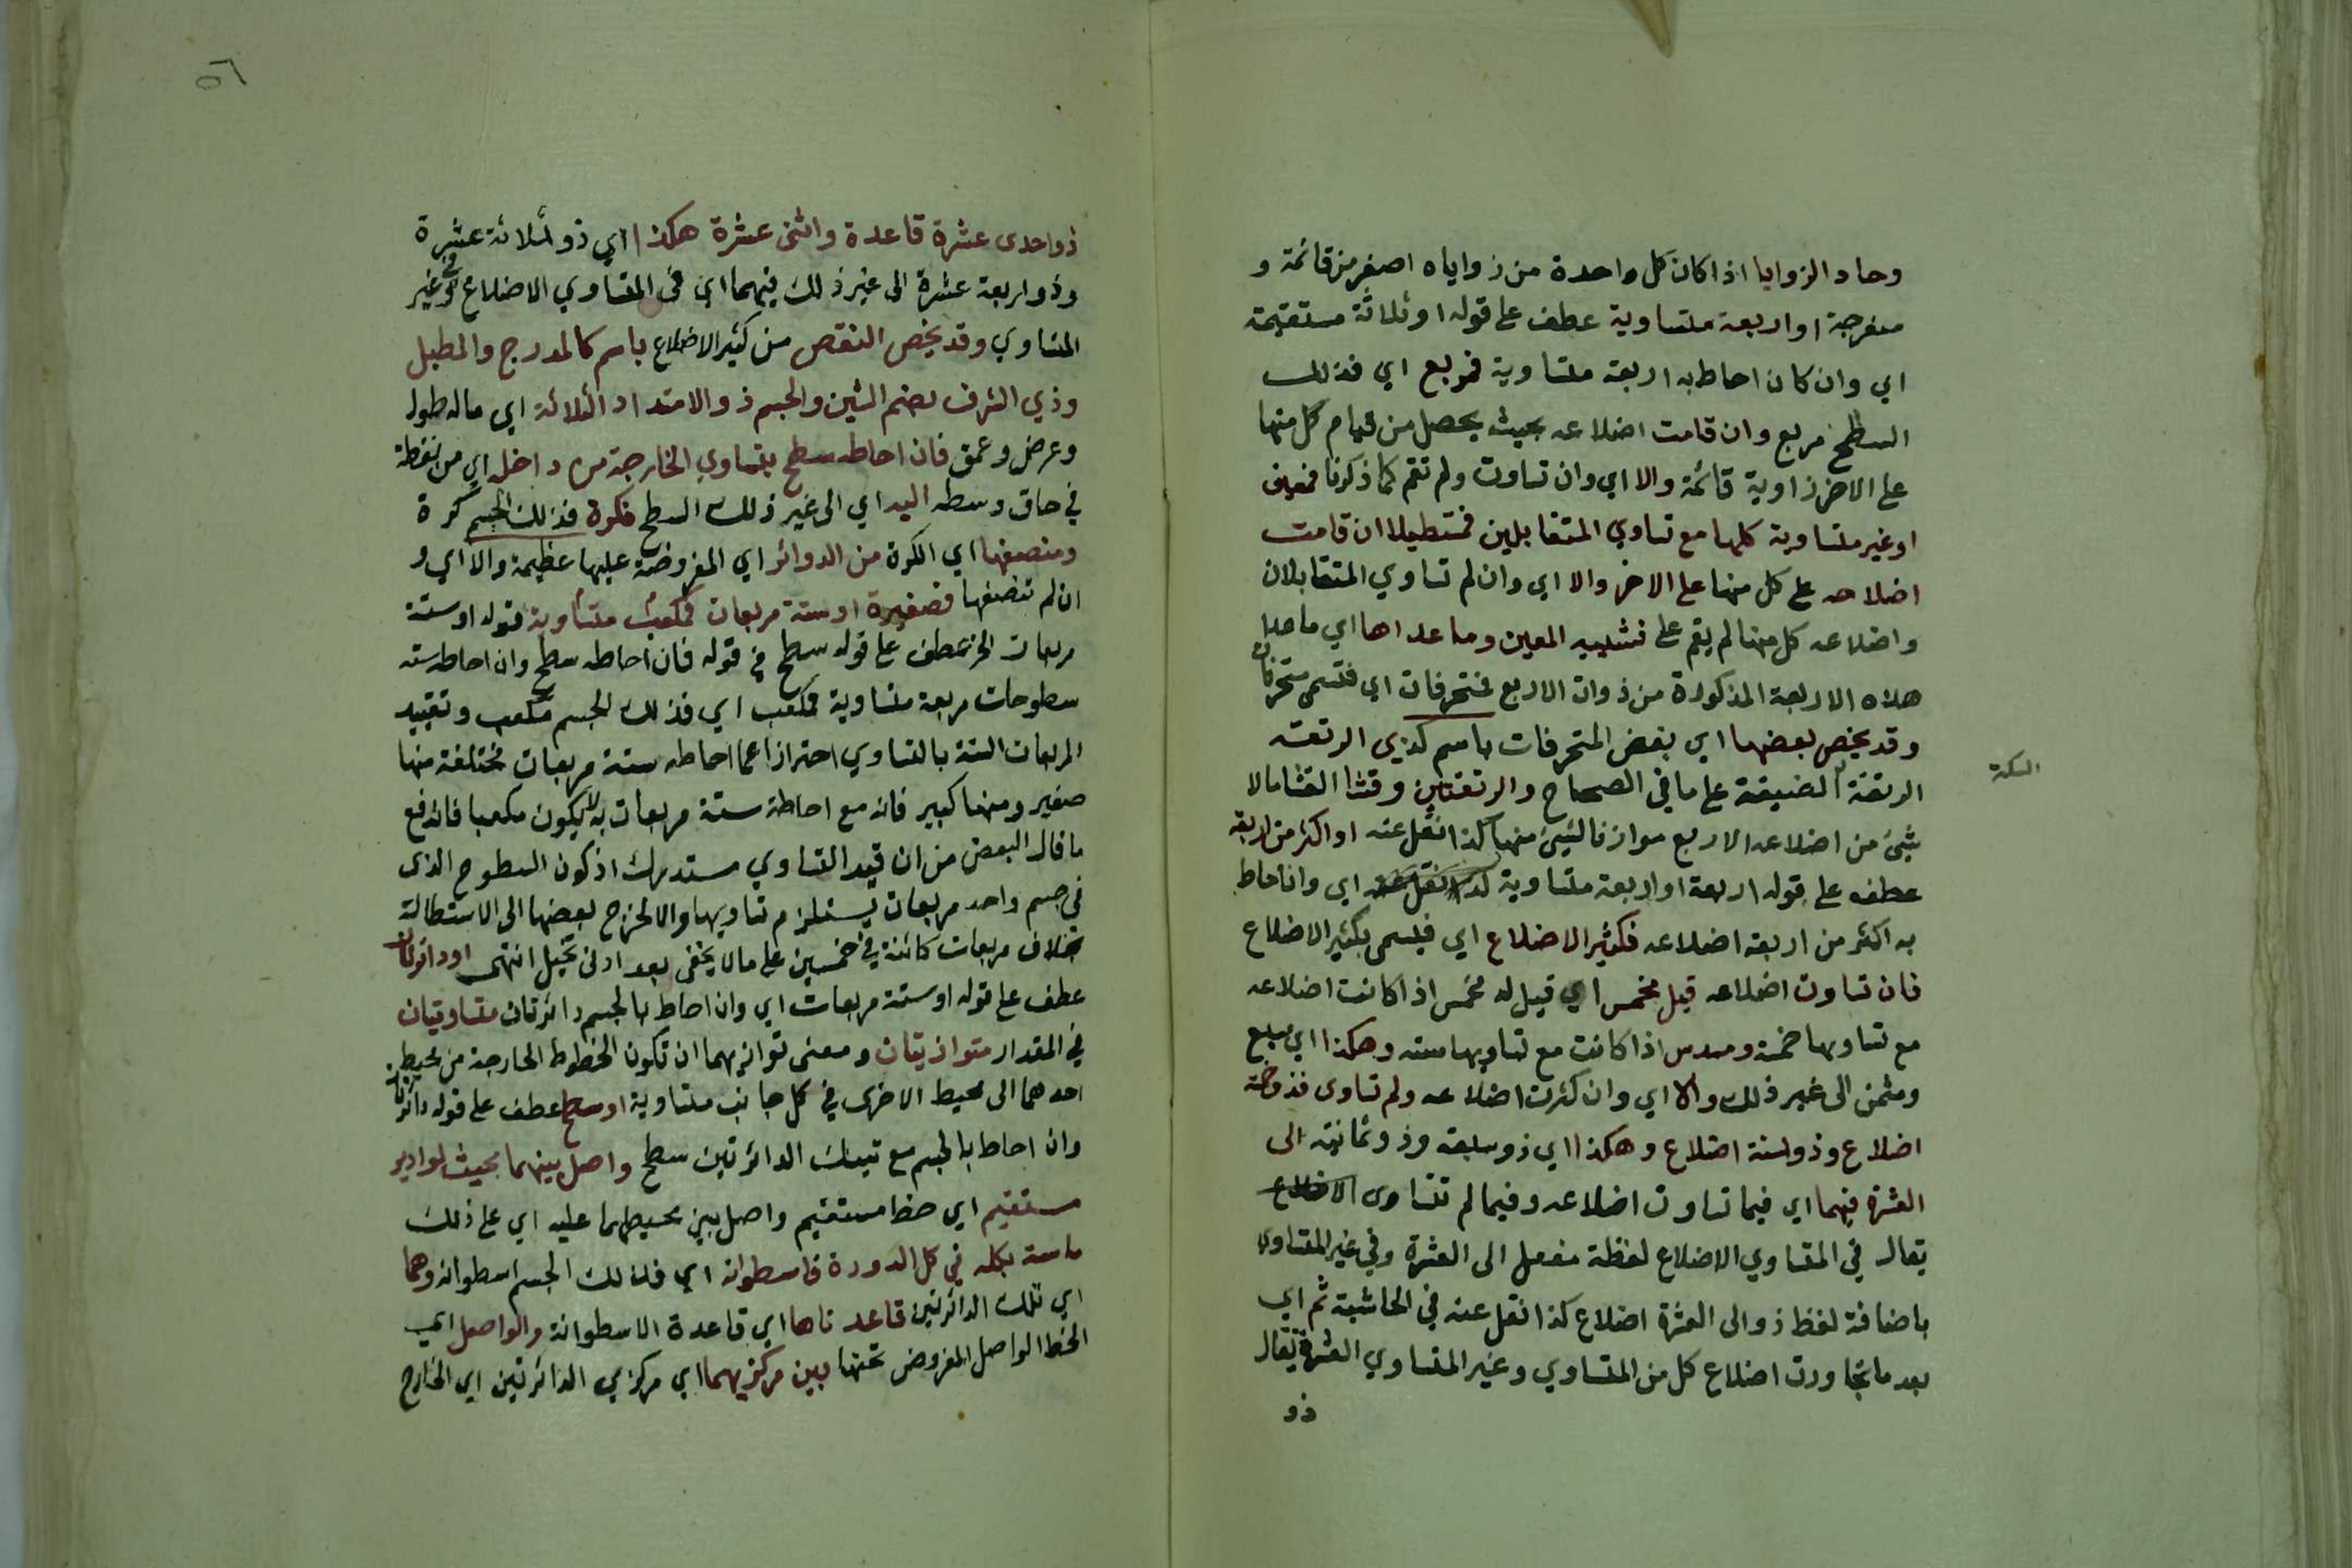 وحاد الزوايا اذا كان كل واحدة من زواياه اصغر من قائمة و
منفرجة او اربعة متساوية عطف على قوله او ثلاثة مستقيمة
اي وان كان احاط به اربعة متساوية فمربع اي فذلك
السطح مربع وان قامت اضلاعه بحيث يحصل من قيام كل منها
على الاخر زاوية قائمة والا اي وان تساوت ولم تقم كما ذكرنا فمعين
او غير متساوية كلها مع تساوي المتقابلين فمستطيلا ان قامت
اضلاعه على كل منها على الاخر والا اي وان لم تساوي المتقابلان
واضلاعه كل منها لم يقم على فشبيه المعين وما عداها اي ما عدا
هذه الاربعة المذكورة من ذوات الاربع فمتحرفات اي فتسمى متحرفات
وقد يخص بعضها اي بعض المتحرفات باسم كذي الرنقة
الرنقة الضيقة على ما في الصحاح والرنقتين وقثا القثا مالا
السكة
شيئ من اضلاعه الاربع مواز فالشيئ منها كذا نقل عنه او اكثر من اربعة
عطف على قوله اربعة او اربعة متساوية اي وان احاط
به اكثر من اربعة اضلاعه فكثير الاضلاع اي فيسمى بكثير الاضلاع
فان تساوت اضلاعه قيل مخمس اي قيل له مخمس اذا كانت اضلاعه
مع تساويها خمسة ومسدس اذا كانت مع تساويها سته وهكذا اي مسبع
ومثمن الى غير ذلك والا اي وان كثرت اضلاعه ولم تساوى فذو خمسة
اضلاع وذو ستة اضلاع وهكذا اي ذو سبعة وذو ثمانية الى
العشرة فيهما اي فيما تساوت اضلاعه وفيما لم تتساوى الاضلاع
يقال في المتساوي الاضلاع لفظة مفعل الى العشرة وفي غير المتساوي
باضافة لفظ ذو الى العشرة اضلاع كذا نقل عنه في الحاشية ثم اي
بعد ما تجاورت اضلاع كل من المتساوي وغير المتساوي العشرة يقال
ذو
٥٦
ذو احدى عشرة قاعدة واثنى عشرة هكذا اي ذو ثلاثة عشرة
وذو اربعة عشرة الى غير ذلك فيهما اي في المتساوي الاضلاع وفي غير
المتساوي وقد يخص النقص من كثير الاضلاع باسم كالمدرج والمطبل
وذي الشرف بضم الشين والجسم ذو الامتداد الثلاثة اي ماله طول
وعرض وعمق فان احاطه سطح بتساوي الخارجة من داخله اي من نقطة
في حاق وسطه اليه اي الى غير ذلك السطح فكرة فذلك الجسم كرة
ومنصفها اي الكرة من الدوائر اي المفروضة عليها عظيمة والا اي و
ان لم تنصفها فصغيرة او ستة مربعات فمكعب متساوية قوله او ستة
مربعات الخ عطف على قوله سطح في قوله فان احاطه سطح وان احاطه سته
سطوحات مربعة متساوية فمكعب اي فذلك الجسم مكعب وتقييد
المربعات الستة بالتساوي احترازا عما احاطه ستة مربعات مختلفة منها
صغير ومنها كبير فانه مع احاطة ستة مربعات به لا يكون مكعبا فاندفع
ما قال البعض من ان قيد التساوي مستدرك اذ كون السطوح الذى
في جسم واحد مربعات يستلزم تساويها والا لخرج بعضها الى الاستطالة
بخلاف مربعات كائنة في خمسين على مالا يخفى بعد ادنى تخيل انتهى او دائرتان
عطف على قوله او ستة مربعات اي وان احاط بالجسم دائرتان متساويتان
في المقدار متوازيتان ومعنى توازيهما ان تكون الخطوط الخارجة من محيط
احدهما الى محيط الاخرى في كل جانب متساوية او سطح عطف على قوله دائرتان
وان احاط بالجسم مع تينك الدائرتين سطح واصل بينهما بحيث لو ادير
مستقيم اي خط مستقيم واصل بين محيطيهما عليه اي على ذلك
ماسه بكله في كل الدورة فاسطوانه اي فذلك الجسم اسطوانه وهما
اي تلك الدائرتين قاعدتاها اي قاعدة الاسطوانة والواصل اي
الخط الواصل المفروض تحتها بين مركزيهما اي مركزي الدائرتين اي الخارج